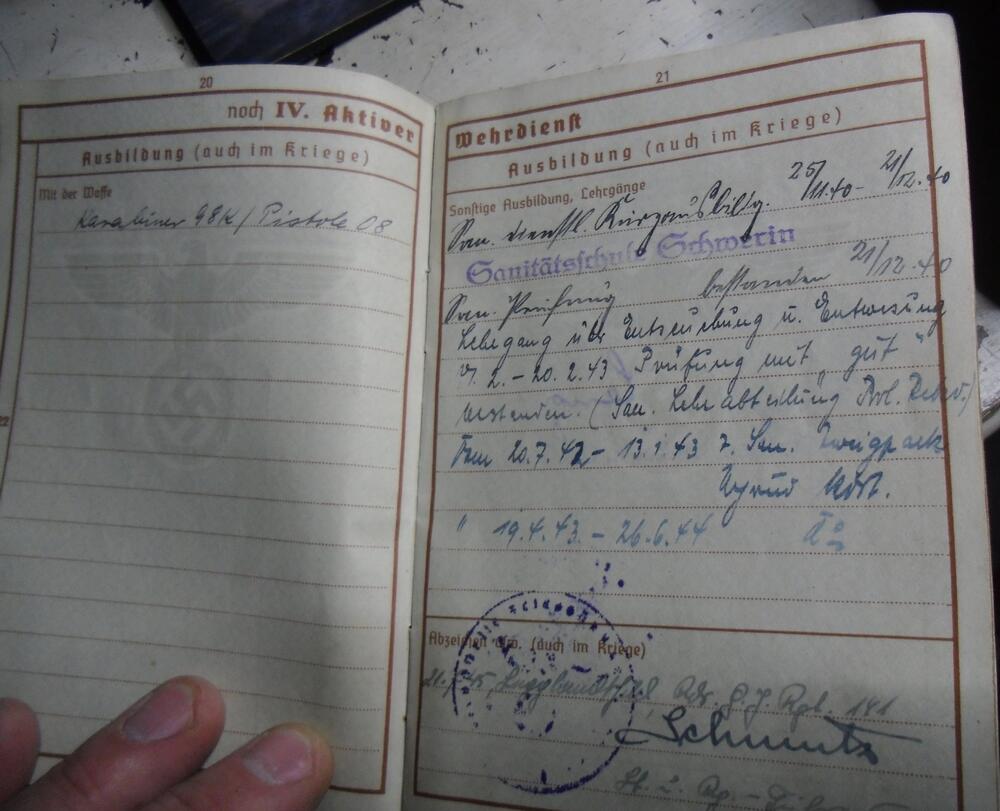 20
noch IV. Aktiver
Ausbildung (auch im Kriege)
Mit der Waffe
Karabiner 98K / Pistole 08
22
21
Wehrdienst
Ausbildung (auch im Kriege)
Sonstige Ausbildung, Lehrgänge
San. dienstl. Kurzausbildg. 25/11.40 - 21/12.40
Sanitätsschule Schwerin
San. Prüfung bestanden 21/12.40
Lehrgang über Entseuchung u. Entwesung
2. - 20.2.43 Prüfung mit „gut“
bestanden. (San. Lehrabteilung
Vom 20.7.42 - 13.1.43 7. San.
" 19.4.43. - 26.6.44
Abzeichen usw. (auch im Kriege)
Rgt. 141
Schmutz